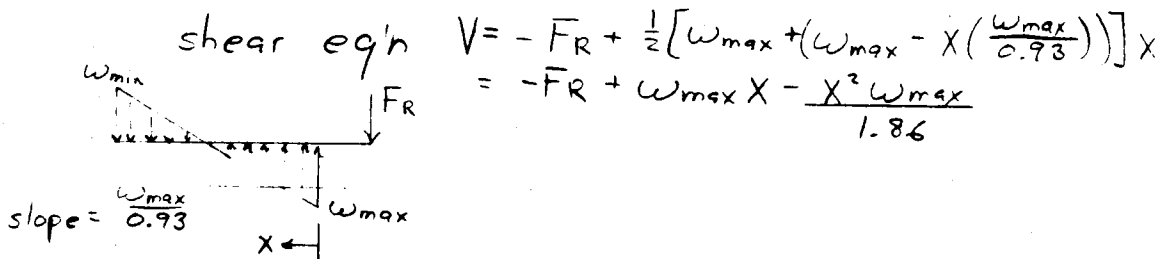 shear eq'n V = - FR + 1/2 [ωmax + (ωmax - x(ωmax/0.93))] x
= -FR + ωmax x - x² ωmax/1.86
ωmin
FR
slope = ωmax/0.93
ωmax
x